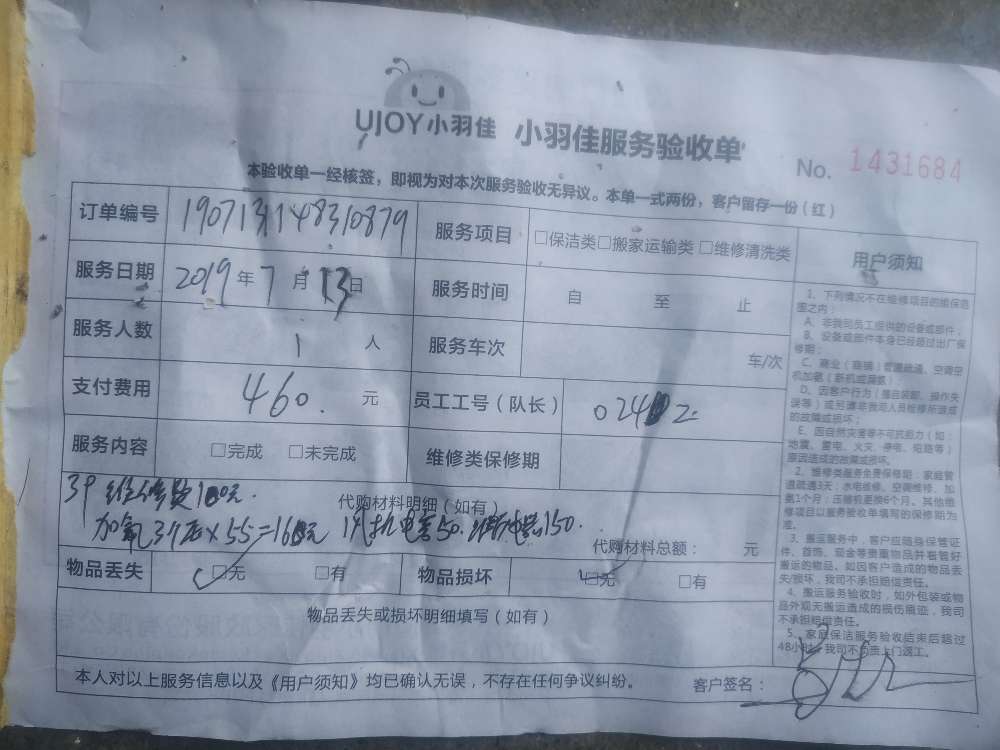 UJOY小羽佳 小羽佳服务验收单
No. 1431684
本验收单一经核签，即视为对本次服务验收无异议。本单一式两份，客户留存一份（红）
订单编号 190713148310879 服务项目 □保洁类□搬家运输类□维修清洗类 用户须知
服务日期 2019年7月13日 服务时间 自 至 止
服务人数 1人 服务车次 车/次
支付费用 460. 元 员工工号（队长）
服务内容 □完成 □未完成 维修类保修期
代购材料明细（如有）
加氧 3个压×55=160元
代购材料总额： 元
物品丢失 □无 □有 物品损坏 □无 □有
物品丢失或损坏明细填写（如有）
本人对以上服务信息以及《用户须知》均已确认无误，不存在任何争议纠纷。 客户签名：
1、下列情况不在维修项目的维保范
围之内：
A、非我司员工提供的设备或部件；
B、设备或部件本身已经超过出厂保
修期；
C、商业（商铺）管道疏通、空调空
机加氨（新机或漏氨）；
D、因客户行为（擅自装卸、操作失
误等）或另请非我司人员维修所造成
的故障或损坏；
E、因自然灾害等不可抗磨力（如：
地震、雷电、火灾、停电、短路等）
原因造成的故障或损坏。
2、维修类服务免费保修期：家庭管
道疏通3天；水电维修、空调维修、加
氨1个月；压缩机更换6个月。其他维
修项目以服务验收单填写的保修期为
准。
3、搬运服务中，客户应随身保管证
件、首饰、现金等贵重物品并看管好
搬运的物品。如因客户造成的物品丢
失/损坏，我司不承担赔偿责任。
4、搬运服务验收时，如外包装或物
品外观无搬运造成的损伤痕迹，我司
不承担赔偿责任。
5、家庭保洁服务验收结束后超过
48小时，我司不负责上门返工。